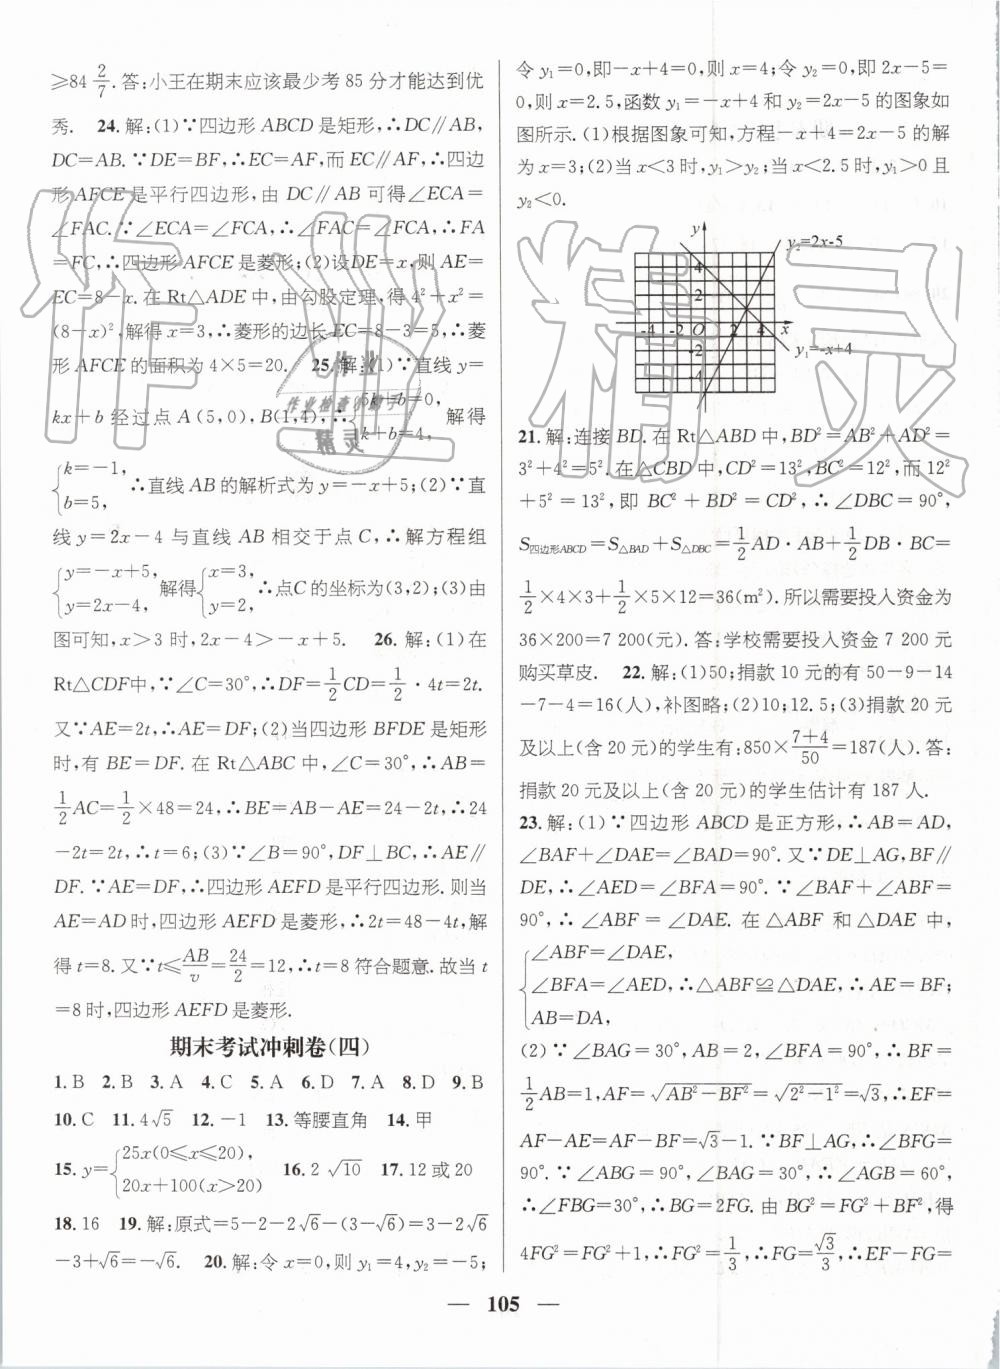 ≥84 2/7.答:小王在期末应该最少考 85 分才能达到优
秀. 24.解:(1)∵四边形 ABCD 是矩形,∴DC∥AB,
DC=AB.∵DE=BF,∴EC=AF,而 EC∥AF,∴四边
形 AFCE 是平行四边形,由 DC∥AB 可得∠ECA=
∠FAC.∵∠ECA=∠FCA,∴∠FAC=∠FCA,∴FA
=FC,∴四边形 AFCE 是菱形;(2)设 DE=x,则 AE=
EC=8-x.在 Rt△ADE 中,由勾股定理,得 4²+x²=
(8-x)²,解得 x=3,∴菱形的边长 EC=8-3=5,∴菱
形 AFCE 的面积为 4×5=20. 25.解:(1)∵直线 y=
kx+b 经过点 A(5,0),B(1,4),∴{5k+b=0, k+b=4, 解得
{k=-1, b=5, ∴直线 AB 的解析式为 y=-x+5;(2)∵直
线 y=2x-4 与直线 AB 相交于点 C,∴解方程组
{y=-x+5, y=2x-4, 解得{x=3, y=2, ∴点C的坐标为(3,2);(3)由
图可知,x>3 时,2x-4>-x+5. 26.解:(1)在
Rt△CDF中,∵∠C=30°,∴DF=1/2CD=1/2·4t=2t.
又∵AE=2t,∴AE=DF;(2)当四边形 BFDE 是矩形
时,有 BE=DF.在 Rt△ABC 中,∠C=30°,∴AB=
1/2AC=1/2×48=24,∴BE=AB-AE=24-2t,∴24
-2t=2t,∴t=6;(3)∵∠B=90°,DF⊥BC,∴AE∥
DF.∵AE=DF,∴四边形 AEFD 是平行四边形.则当
AE=AD时,四边形 AEFD 是菱形,∴2t=48-4t,解
得 t=8.又∵t≤AB/v=24/2=12,∴t=8 符合题意.故当 t
=8时,四边形 AEFD 是菱形.
期末考试冲刺卷(四)
1.B 2.B 3.A 4.C 5.A 6.D 7.A 8.D 9.B
10.C 11.4√5 12.-1 13.等腰直角 14.甲
15.y={25x(0≤x≤20), 20x+100(x>20) 16.2√10 17.12 或 20
18.16 19.解:原式=5-2-2√6-(3-√6)=3-2√6
-3+√6=-√6. 20.解:令 x=0,则 y₁=4,y₂=-5;
令 y₁=0,即-x+4=0,则 x=4;令 y₂=0,即 2x-5=
0,则 x=2.5,函数 y₁=-x+4 和 y₂=2x-5 的图象如
图所示.(1)根据图象可知,方程-x+4=2x-5 的解
为 x=3;(2)当 x<3 时,y₁>y₂;当 x<2.5 时,y₁>0 且
y₂<0.
y y₂=2x-5
4
2
-4 -2 O 2 4 x
-2
y₁=-x+4
-4
21.解:连接 BD.在 Rt△ABD 中,BD²=AB²+AD²=
3²+4²=5².在△CBD 中,CD²=13²,BC²=12²,而 12²
+5²=13²,即 BC²+BD²=CD²,∴∠DBC=90°,
S四边形ABCD=S△BAD+S△DBC=1/2AD·AB+1/2DB·BC=
1/2×4×3+1/2×5×12=36(m²).所以需要投入资金为
36×200=7 200(元).答:学校需要投入资金 7 200 元
购买草皮. 22.解:(1)50;捐款 10 元的有 50-9-14
-7-4=16(人),补图略;(2)10;12.5;(3)捐款 20元
及以上(含 20 元)的学生有:850×(7+4)/50=187(人).答:
捐款 20 元及以上(含 20 元)的学生估计有 187 人.
23.解:(1)∵四边形 ABCD 是正方形,∴AB=AD,
∠BAF+∠DAE=∠BAD=90°.又∵DE⊥AG,BF∥
DE,∴∠AED=∠BFA=90°.∵∠BAF+∠ABF=
90°,∴∠ABF=∠DAE.在△ABF 和△DAE 中,
{∠ABF=∠DAE,
∠BFA=∠AED,∴△ABF≌△DAE,∴AE=BF;
AB=DA,
(2)∵∠BAG=30°,AB=2,∠BFA=90°,∴BF=
1/2AB=1,AF=√(AB²-BF²)=√(2²-1²)=√3,∴EF=
AF-AE=AF-BF=√3-1.∵BF⊥AG,∴∠BFG=
90°.∵∠ABG=90°,∠BAG=30°,∴∠AGB=60°,
∴∠FBG=30°,∴BG=2FG.由 BG²=FG²+BF²,得
4FG²=FG²+1,∴FG²=1/3,∴FG=√3/3,∴EF-FG=
— 105 —
作业精灵
作业检查小助手
精灵